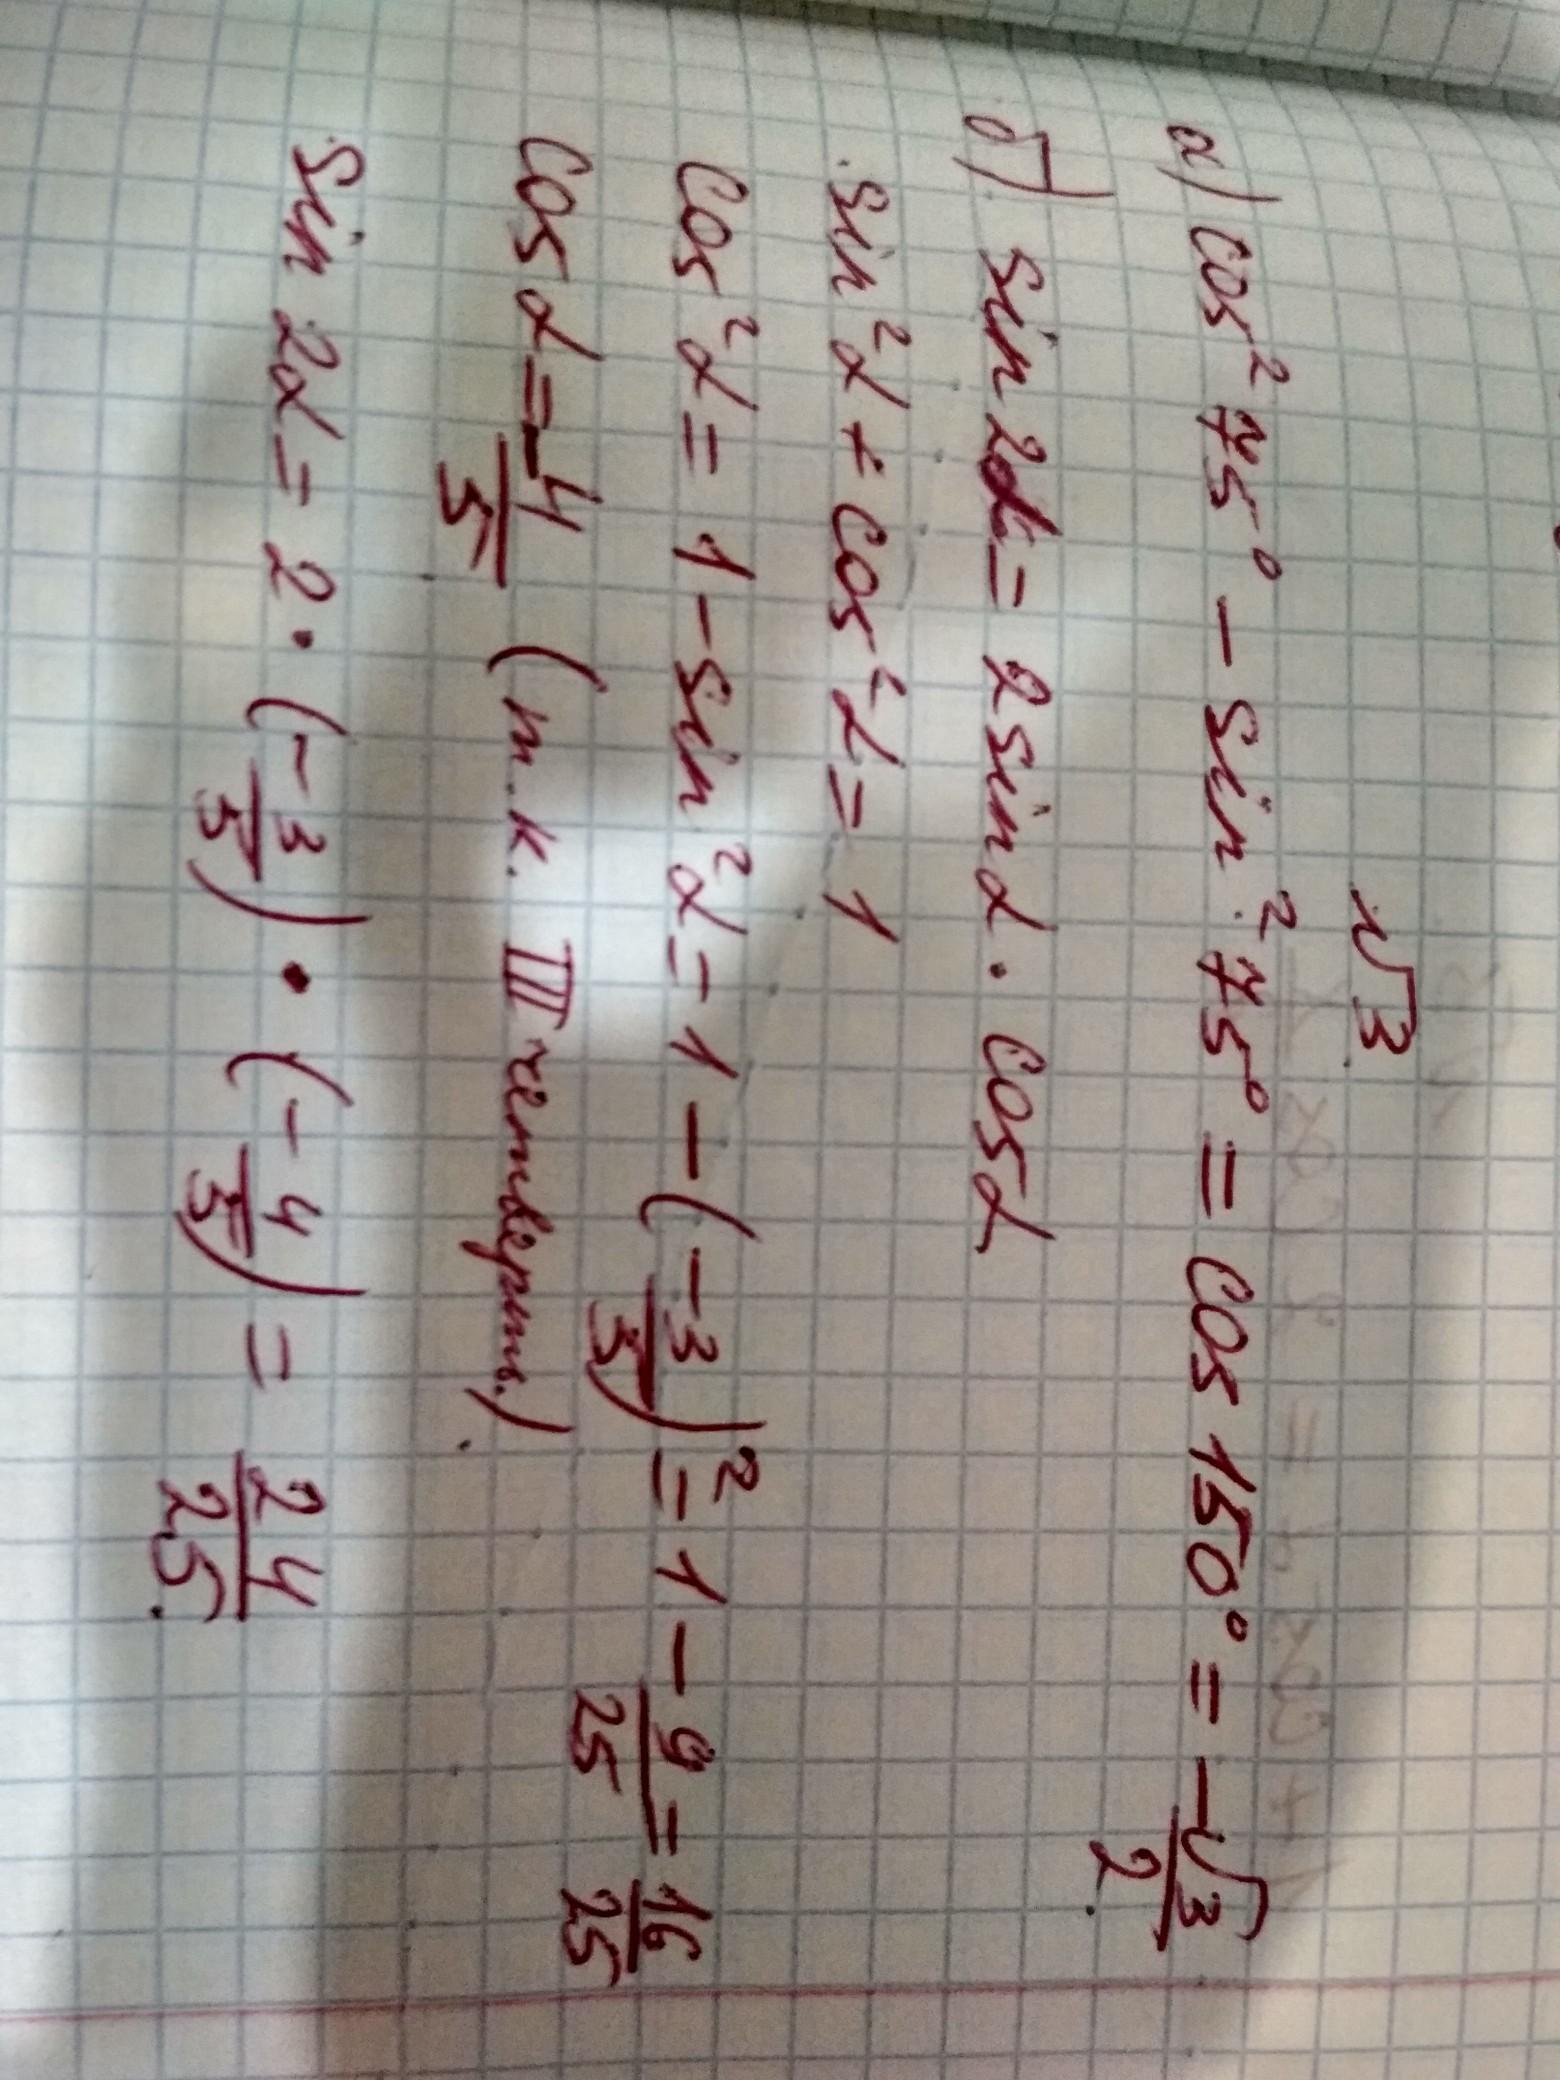 √3
а) cos² 75° − sin² 75° = cos 150° = −√3/2.
б) sin 2α = 2 sin α · cos α
sin² α + cos² α = 1
cos² α = 1 − sin² α = 1 − (−3/5)² = 1 − 9/25 = 16/25
cos α = −4/5 (т.к. III четверть).
sin 2α = 2 · (−3/5) · (−4/5) = 24/25.